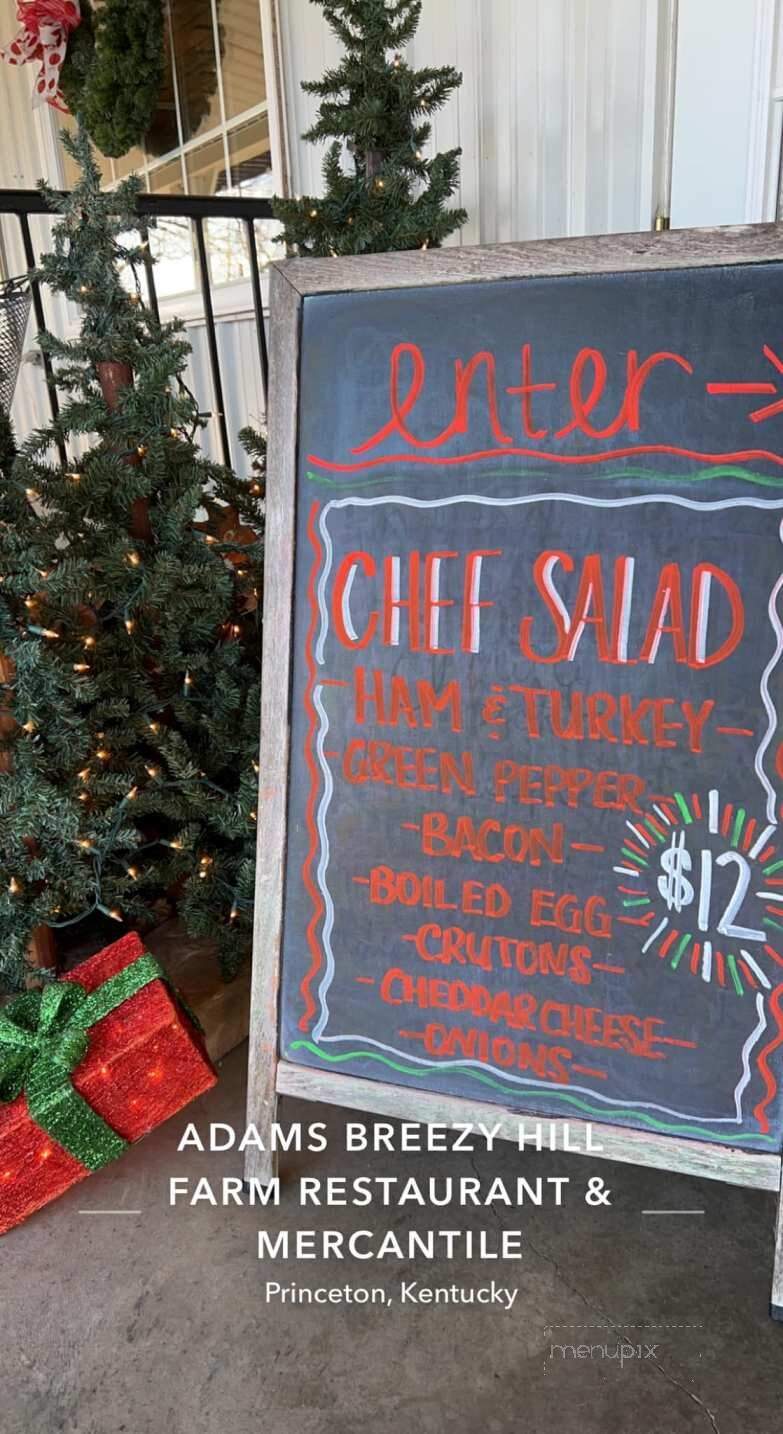 enter →
CHEF SALAD
-HAM & TURKEY-
-GREEN PEPPER-
-BACON-
$12
-BOILED EGG-
-CRUTONS-
-CHEDDAR CHEESE-
-ONIONS-
ADAMS BREEZY HILL
FARM RESTAURANT &
MERCANTILE
Princeton, Kentucky
menupix